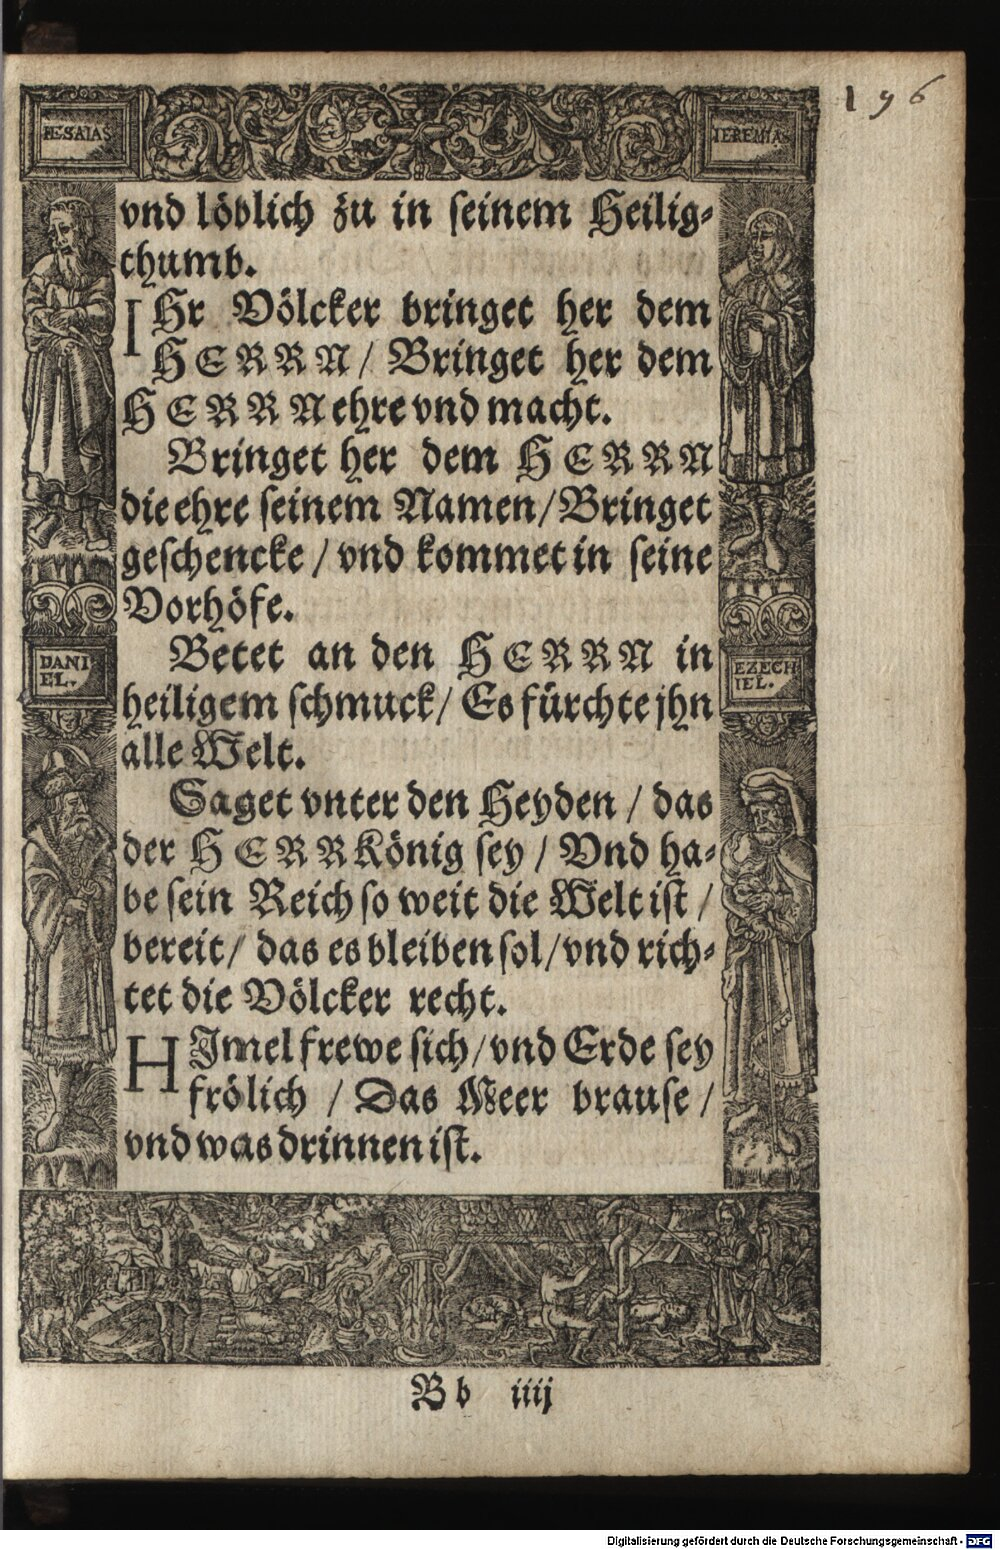 196
IESAIAS
IEREMIAS
vnd löblich zu in seinem Heilig⸗
thumb.
IHr Völcker bringet her dem
HERRN / Bringet her dem
HERRN ehre vnd macht.
Bringet her dem HERRN
die ehre seinem Namen / Bringet
geschencke / vnd kommet in seine
Vorhöfe.
Betet an den HERRN in
heiligem schmuck / Es fürchte jhn
alle Welt.
Saget vnter den Heyden / das
der HERR König sey / Vnd ha⸗
be sein Reich so weit die Welt ist /
bereit / das es bleiben sol / vnd rich⸗
tet die Völcker recht.
HImel frewe sich / vnd Erde sey
frölich / Das Meer brause /
vnd was drinnen ist.
DANI
EL.
EZECH
IEL.
Bb iiij
Digitalisierung gefördert durch die Deutsche Forschungsgemeinschaft - DFG